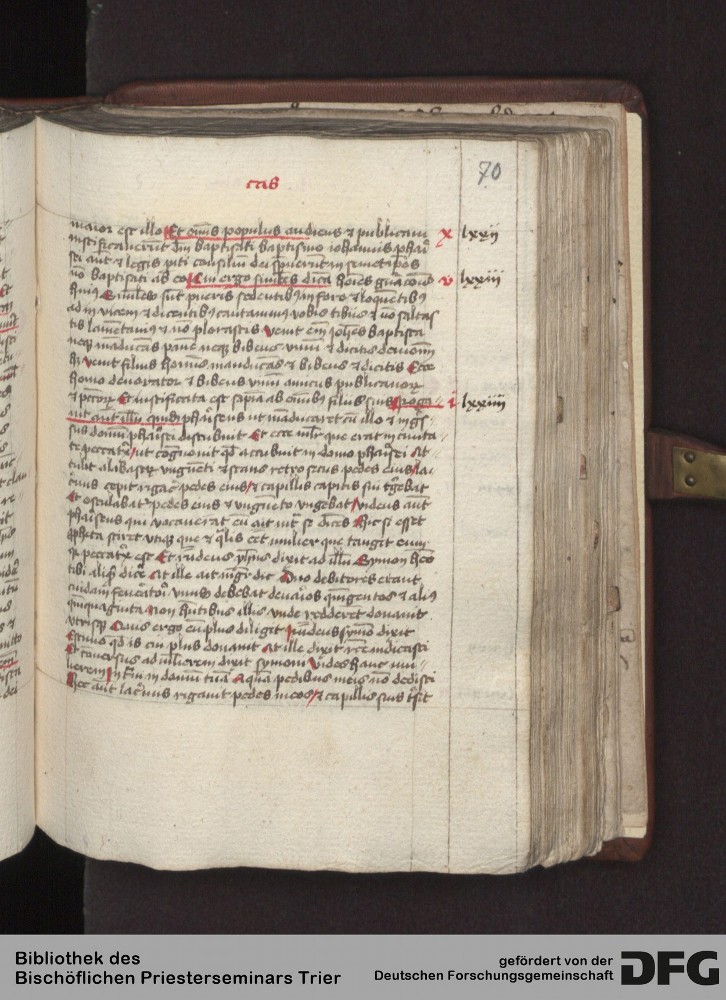 cas
70
maior est illo Et omis populus audiens et publicani x lxxij
iustificauerunt dm baptisati baptismo iohannis phari
sei aut et legis piti consilium dei spuerunt in semetipos
no baptisati ab eo Cui ergo similes dica hoies gnacionis v lxxiij
huius Et similes sut pueris sedentibus in foro et loquetibus
ad inuicem et dicentibus cantauimus vobis tibiis et no saltas
tis lametauimus et no plorastis Venit eni iohes baptista
neque maducas pane neque bibens vinu et dicitis demoniu
hz Venit filius hominis manducas et bibens et dicitis Ecce
homo deuorator et bibens vinu amicus publicanorum
et pctorum Et iustificata est sapia ab omibus filiis suis Roga i lxxiiij
uit aut illu quida phariseus ut maducaret cu illo et ingres
sus domu pharisei discubuit Et ecce mlr que erat in ciuita
te peccatrix ut cognouit qd accubuit in domo pharisei At
tulit alabastrum vngueti et stans retro secus pedes eius la
crimis cepit rigare pedes eius et capillis capitis sui tergebat
Et osculabatur pedes eius et vngueto vngebat videns aut
phariseus qui vocauerat eu ait int se dices Hic si esset
ppheta sciret vtique que et qualis eet mulier que tangit eum
quia peccatrix est Et respondens yhesus dixit ad illu Symon habeo
tibi aliquid dice At ille ait magister dic Duo debitores erant
cuidam feneratori vnus debebat denarios quingentos et alius
quinquaginta Non hntibus illis vnde redderet donauit
vtrisque Quis ergo eu plus diligit Respondens symo dixit
Estimo qd is cui plus donauit At ille dixit recte iudicasti
Et conuersus ad mlierem dixit symoni Vides hanc mu
lierem Intraui in domu tua Aqua pedibus meis no dedisti
Hec aut lacrimis rigauit pedes meos et capillis suis tersit
Bibliothek des
Bischöflichen Priesterseminars Trier
gefördert von der
Deutschen Forschungsgemeinschaft
DFG